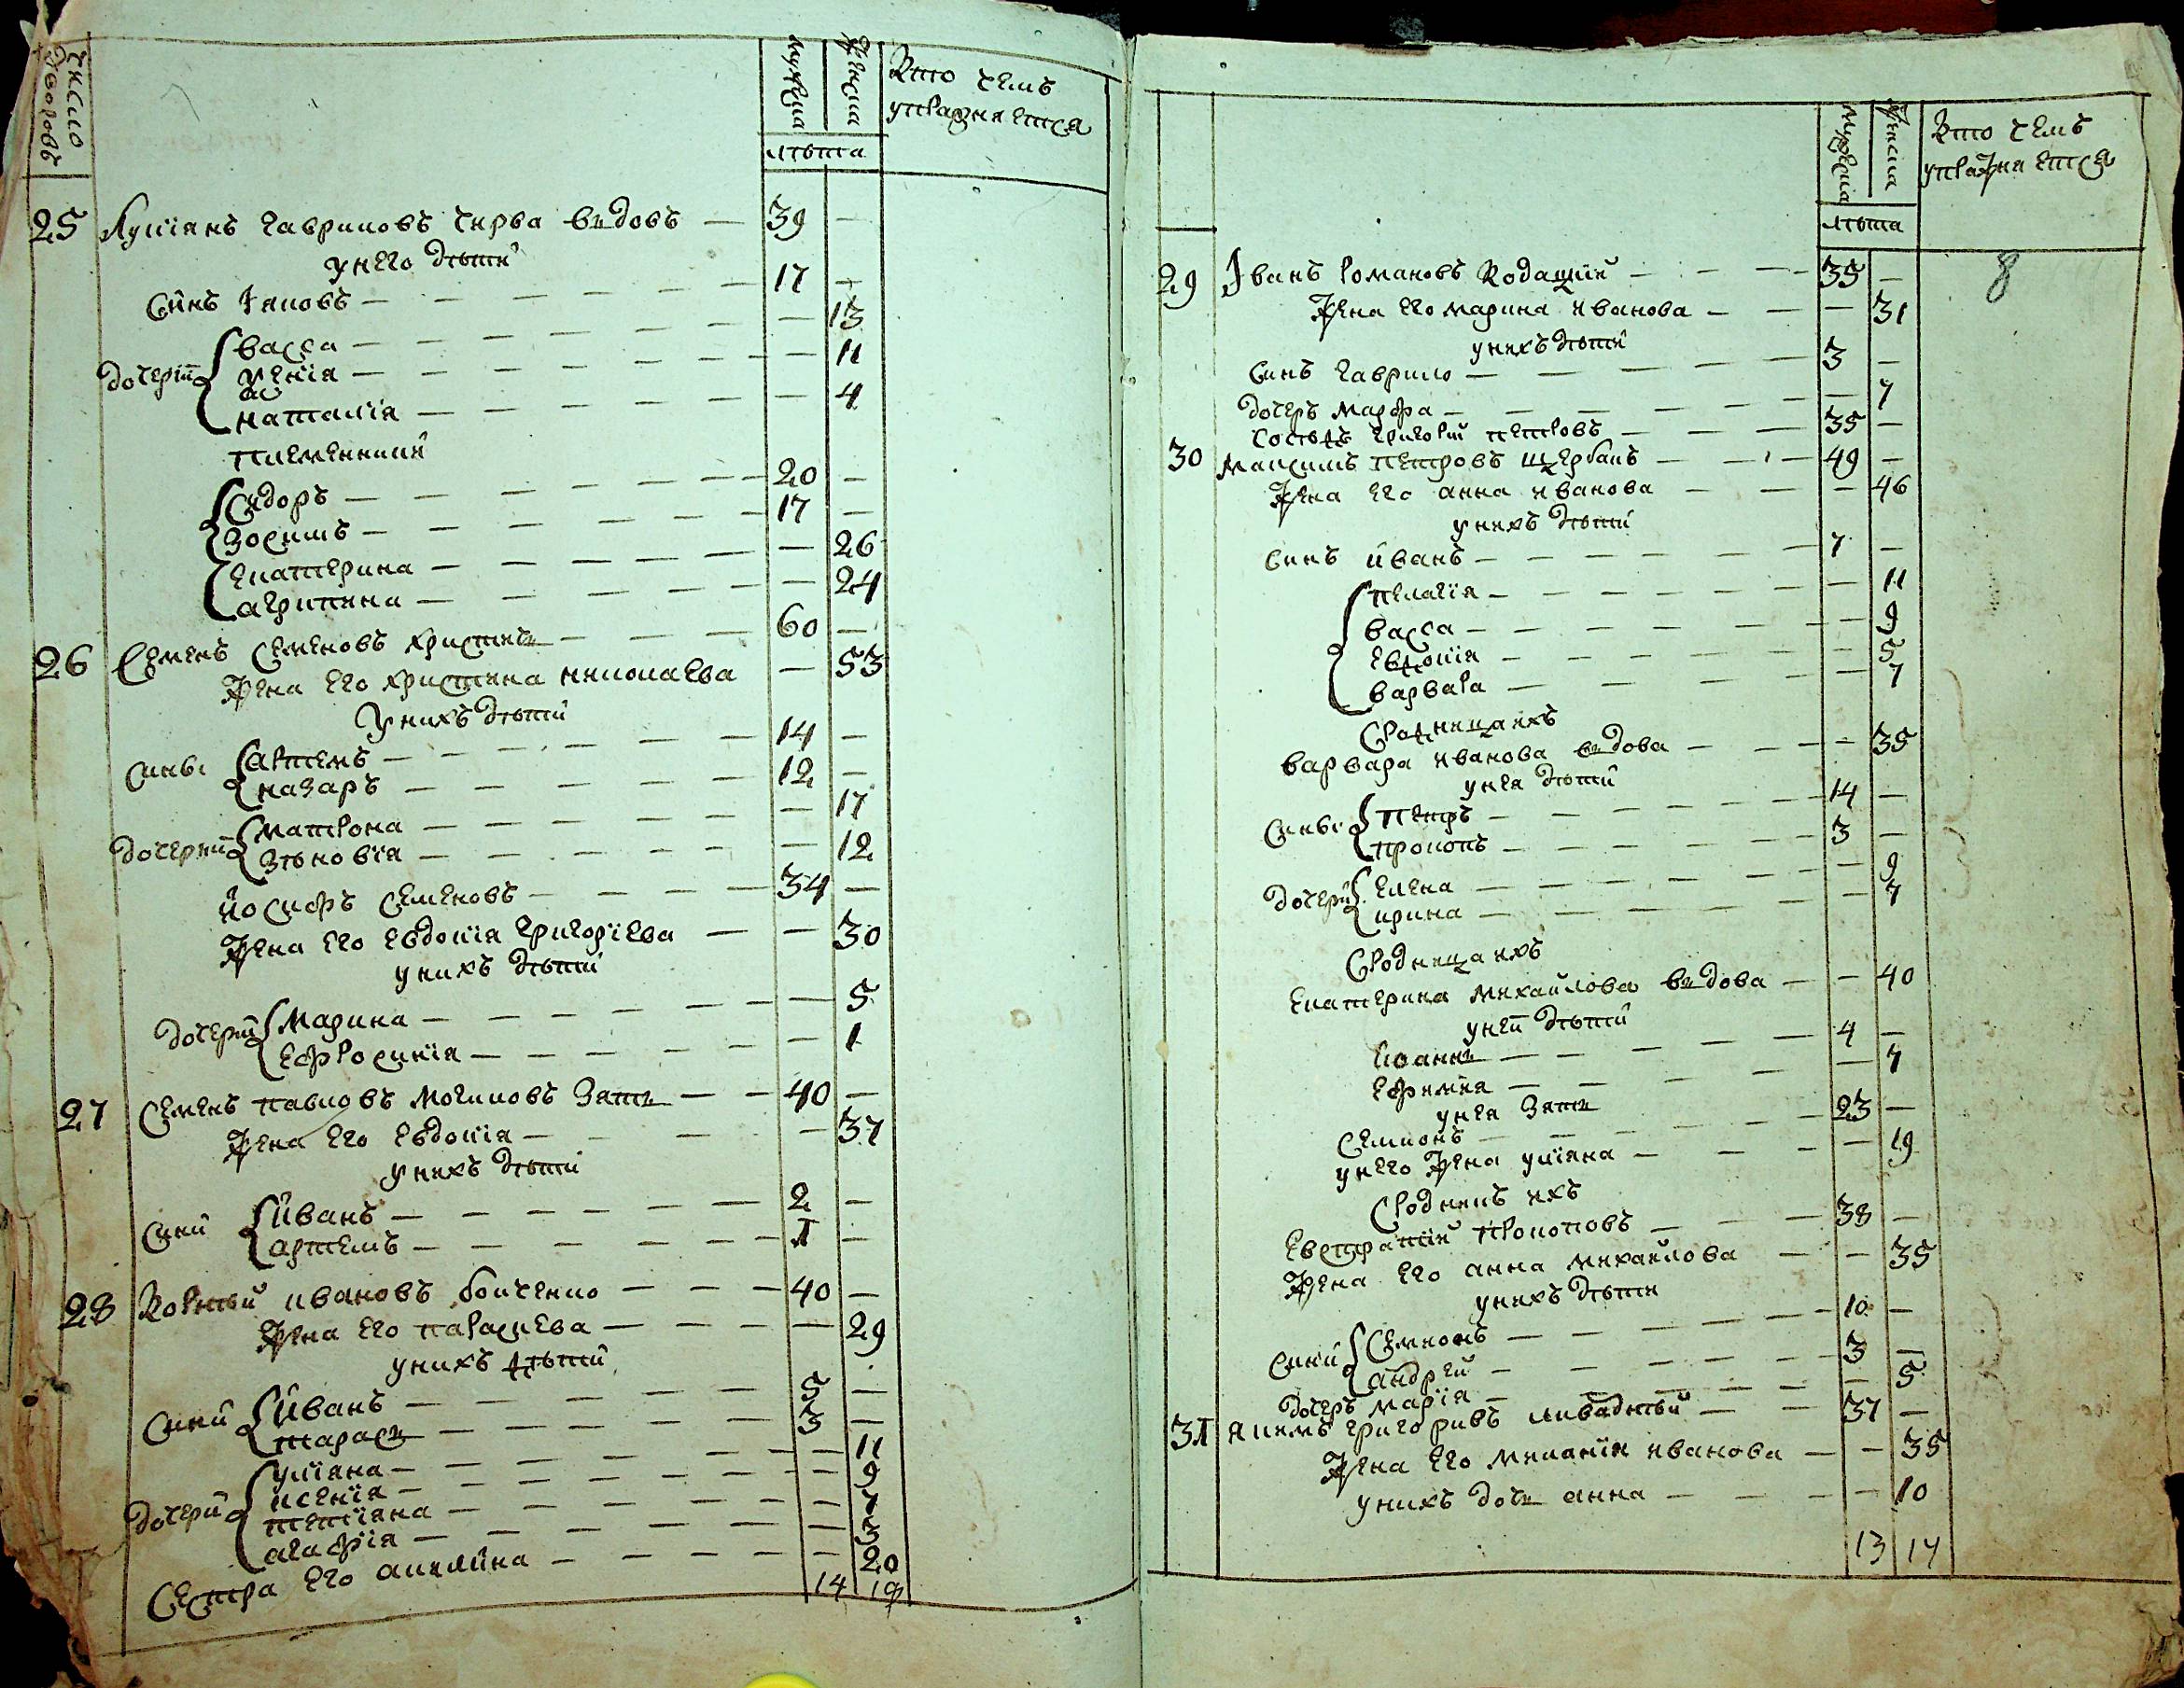 Число дворовъ
мужска
женска
лѣта
Кто чемъ
упражняется
25 Лукіянъ Гавриловъ Чирва вьдовъ — 39 —
у него дѣти
синъ Яковъ — 17 —
дочерій васса — — 13
ксенія — — 11
наталія — — 4
племенники
Сидоръ — 20 —
Зосимъ — 17 —
Екатерина — — 26
агрипина — — 24
26 Семенъ Семеновъ Христич — 60 —
Жена его христина николаева — 53
У нихъ дѣти
сины артемъ — 14 —
назаръ — 12 —
дочерій матрона — — 17
Зѣновія — — 12
йосифъ семеновъ — 34 —
Жена его Евдокія григоріева — — 30
у нихъ дѣти
дочерій Марина — — 5
ефросинія — — 1
27 Семенъ павловъ могиловъ Зять — 40 —
Жена его Евдокія — — 37
у нихъ дѣти
сини йванъ — 2 —
артемъ — 1 —
28 Корнѣй ивановъ бойченко — 40 —
Жена его параскева — — 29
у нихъ дѣти
сини йванъ — 5 —
тарась — 3 —
дочерй уліяна — — 11
ксенія — — 9
тетіяна — — 7
агафія — — 3
Сестра его акилина — — 20
14 19
мужска
женска
лѣта
Кто чемъ
упражняется
8
29 Іванъ Романовъ Кодацкій — 35 —
Жена его марина иванова — — 31
у нихъ дѣти
синъ гаврило — 3 —
дочеръ марфа — — 7
сосѣдъ григорій петровъ — 35 —
30 Максимъ петровъ щербакъ — 49 —
Жена его анна иванова — — 46
у нихъ дѣти
синъ йванъ — 7 —
пелагія — — 11
васса — — 9
евдокія — — 5
варвара — — 7
Сродница ихъ
варвара иванова вьдова — — 35
у нея дѣти
сины петръ — 14 —
прокопъ — 3 —
дочерй елена — — 9
ирина — — 7
Сродница ихъ
Екатерина михайлова вьдова — — 40
у ней дѣти
йоаннь — 4 —
ефимия — — 7
у нея Зять
Семионъ — 23 —
у него Жена уліяна — — 19
Сродникъ ихъ
Евстратій прокоповъ — 38 —
Жена его анна михайлова — — 35
у нихъ дѣти
сини Семионъ — 10 —
андрей — 3 —
дочеръ марія — — 5
31 якимъ григоривъ ливадній — 37 —
Жена его меланія иванова — — 35
у нихъ дочь анна — — 10
13 17